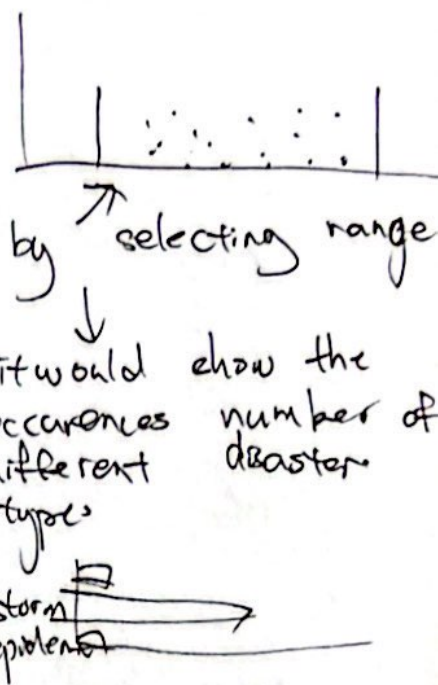 by selecting range
it would show the
occurences number of
different disaster
types
storm
epidem